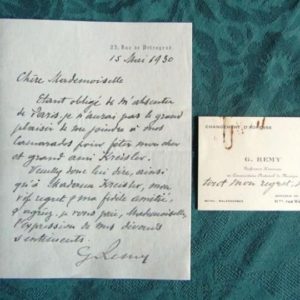 23, Rue de Pétrograd
15 Mai 1930
Chère Mademoiselle
Etant obligé de m'absenter
de Paris, je n'aurai pas le grand
plaisir de me joindre à mes
camarades pour fêter mon cher
et grand ami Kreisler.
Veuillez donc lui dire, ainsi
qu'à Madame Kreisler, mon
vif regret, ma fidèle amitié,
et agréez, je vous prie, Mademoiselle,
l'expression de mes dévoués
sentiments.
G. Remy
CHANGEMENT D'ADRESSE
G. REMY
Professeur Honoraire
au Conservatoire National de Musique
tout mon regret